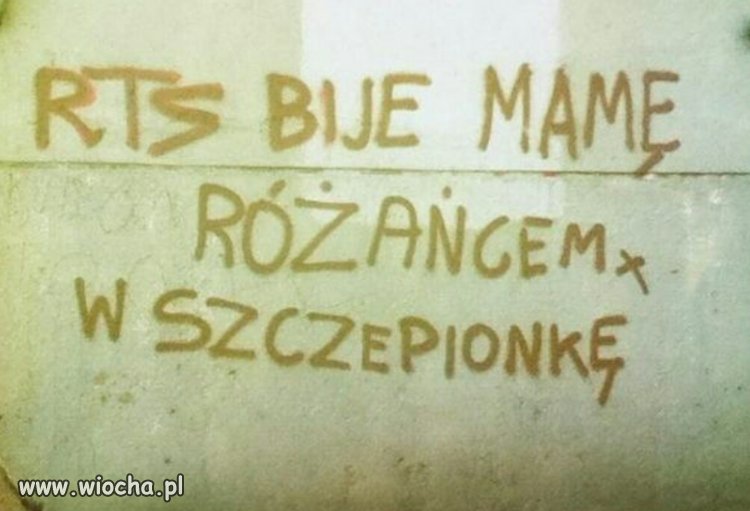 RTS BIJE MAMĘ
RÓŻAŃCEM x
W SZCZEPIONKĘ
www.wiocha.pl